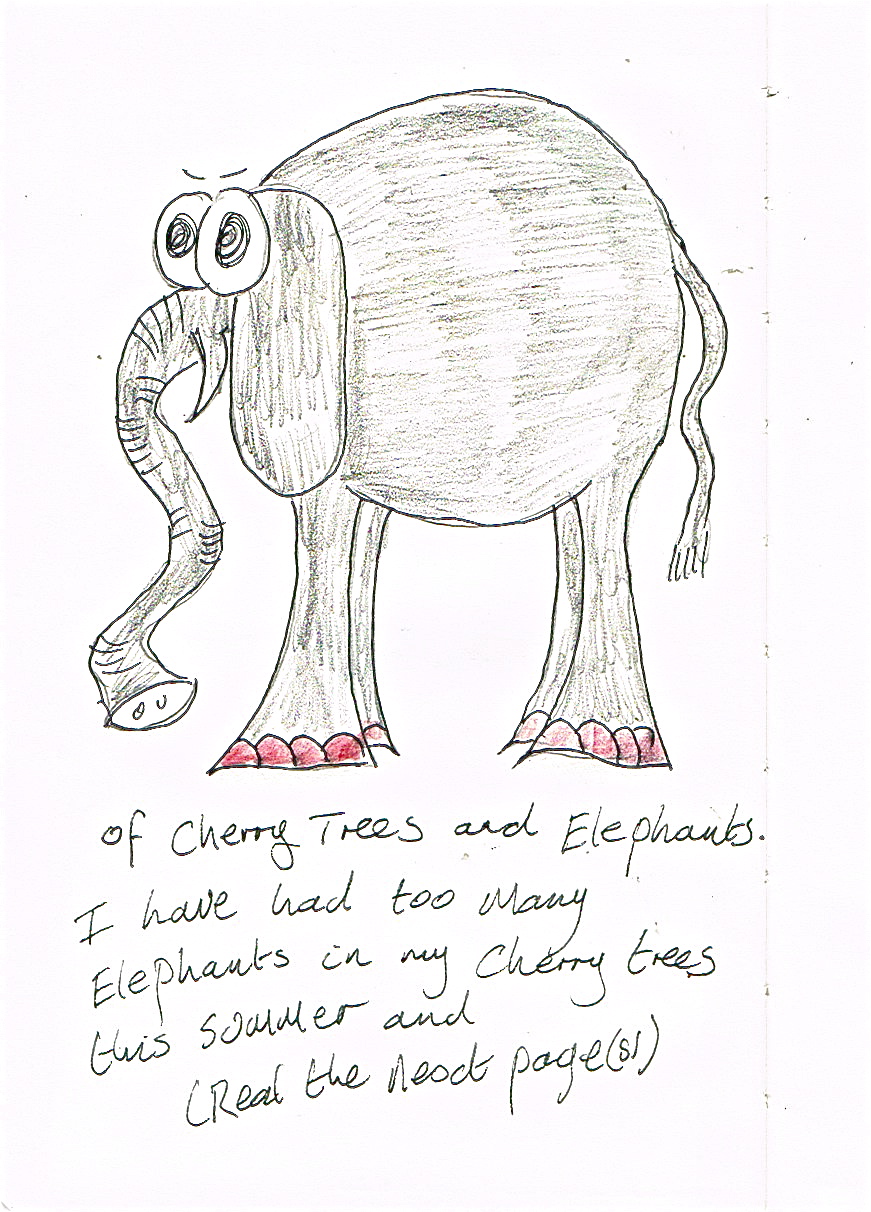 of Cherry Trees and Elephants.
I have had too many
Elephants in my Cherry trees
this summer and
(Read the next page(s))